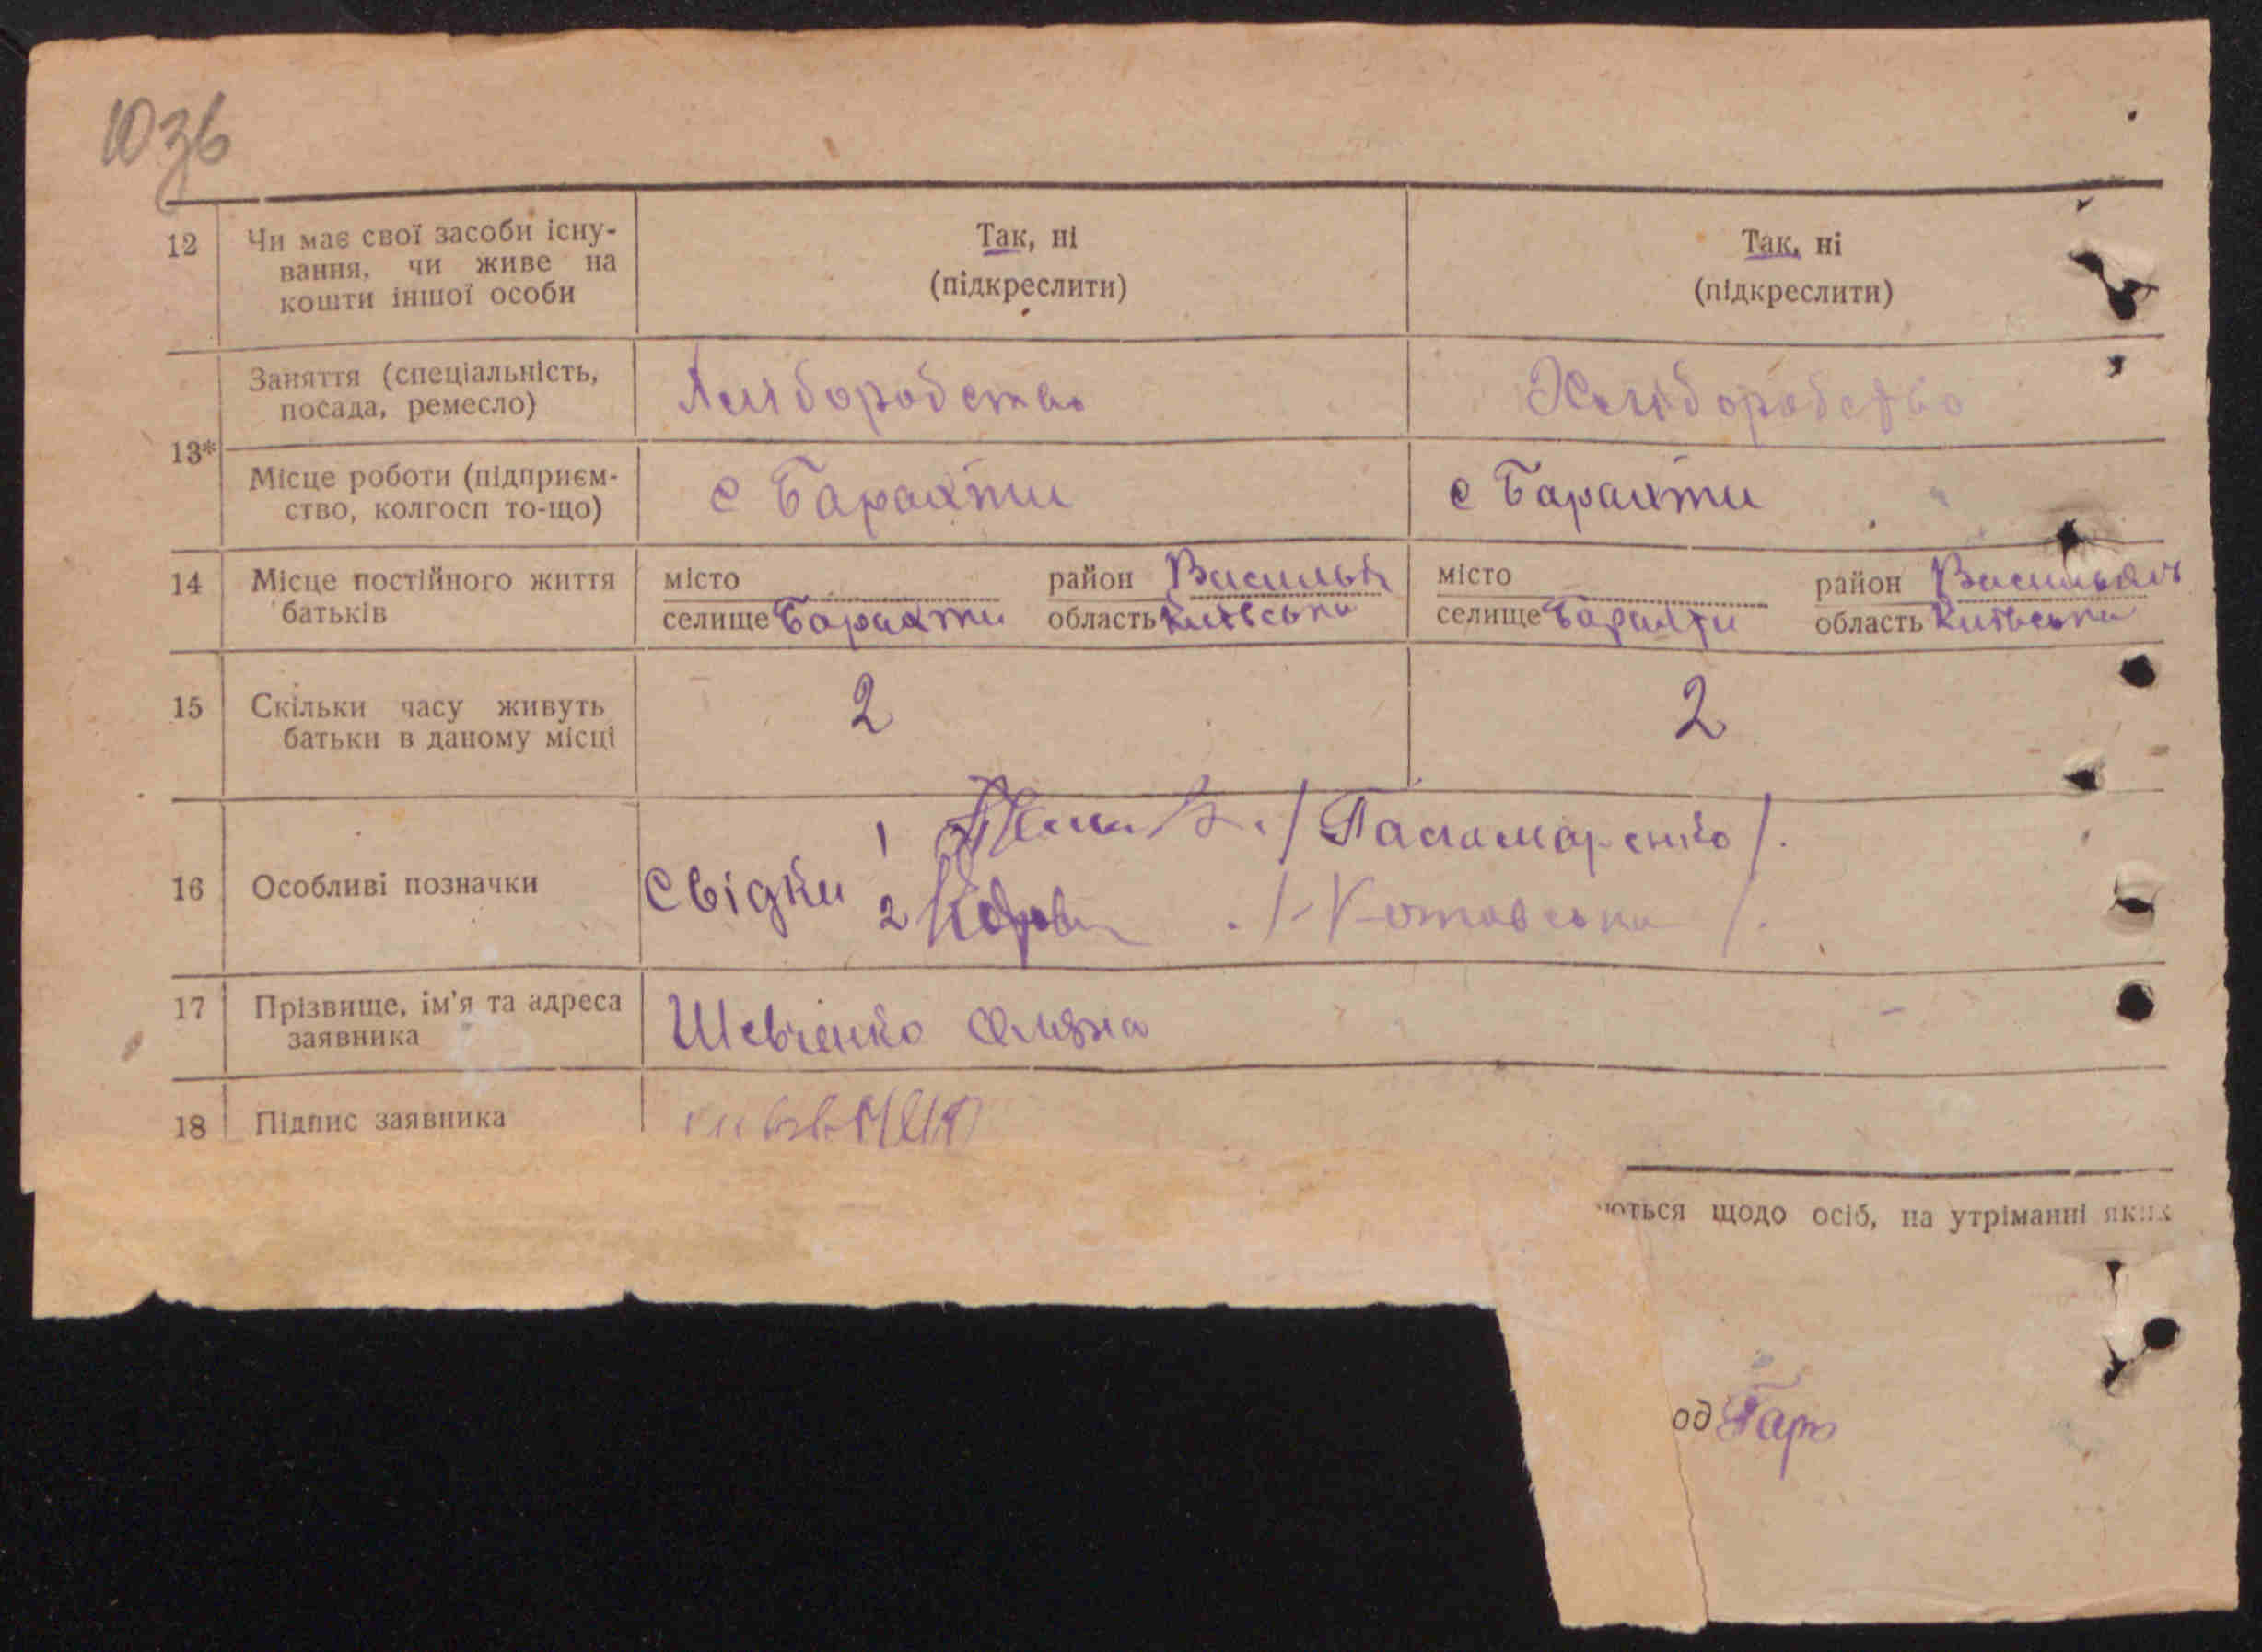 1036
12 Чи має свої засоби існу-
вання, чи живе на
кошти іншої особи
Так, ні
(підкреслити)
Так, ні
(підкреслити)
13*
Заняття (спеціальність,
посада, ремесло)
Хліборобство
Хліборобство
Місце роботи (підприєм-
ство, колгосп то-що)
с Барахти
с Барахти
14 Місце постійного життя
батьків
місто
селище Барахти
район Васильк
область Київська
місто
селище Барахти
район
область Київська
15 Скільки часу живуть
батьки в даному місці
2
2
16 Особливі позначки
Свідки
1 / Паламаренко /.
2 ./ Котовська /.
17 Прізвище, ім'я та адреса
заявника
Шевченко Оляна
18 Підпис заявника
ються щодо осіб, на утріманні яких
од